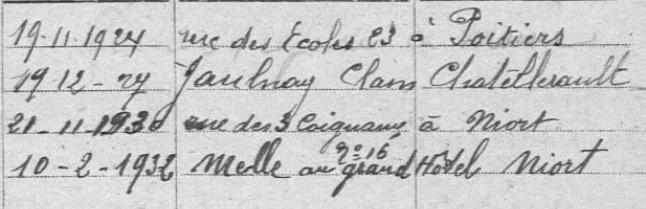 19.11.1924 rue des Écoles 23 à Poitiers
19 12-27 Jaulnay Clam Chatellerault
21-11-1930 rue des 3 Coignaux, à Niort
n° 16
10-2-1932 Melle au grand Hôtel Niort